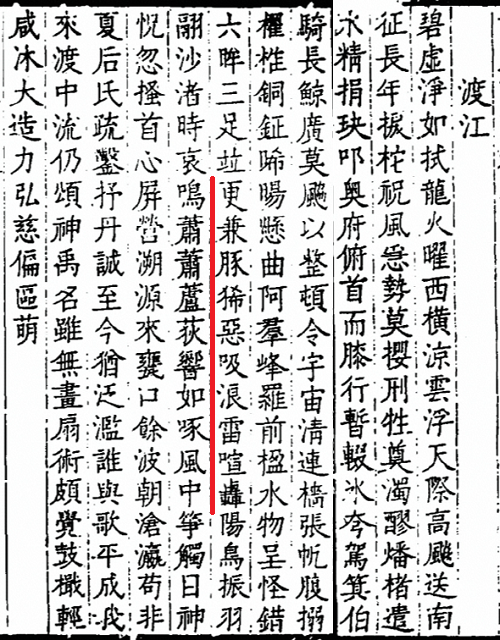 渡江
碧虛淨如拭龍火曜西橫涼雲浮天際高颷送南
征長年捩柁祝風急勢莫攖刑牲奠濁醪燔楮遣
水精捐玦叩奥府俯首而膝行暫輟氷夸駕箕伯
騎長鯨廣莫颷以整頓令宇宙清連檣張帆腹搦
櫂椎銅鉦晞暘懸曲阿羣峰羅前楹水物呈怪錯
六眸三足並更兼豚狶惡吸浪雷喧轟陽鳥振羽
翮沙渚時哀鳴蕭蕭蘆荻響如啄風中箏觸目神
怳忽搔首心屏營溯源來甕口餘波朝滄瀛苟非
夏后氏疏鑿抒丹誠至今猶泛濫誰與歌平成我
來渡中流仍頌神禹名雖無畫扇術頗覺鼓檝輕
咸沐大造力弘慈偏區萌